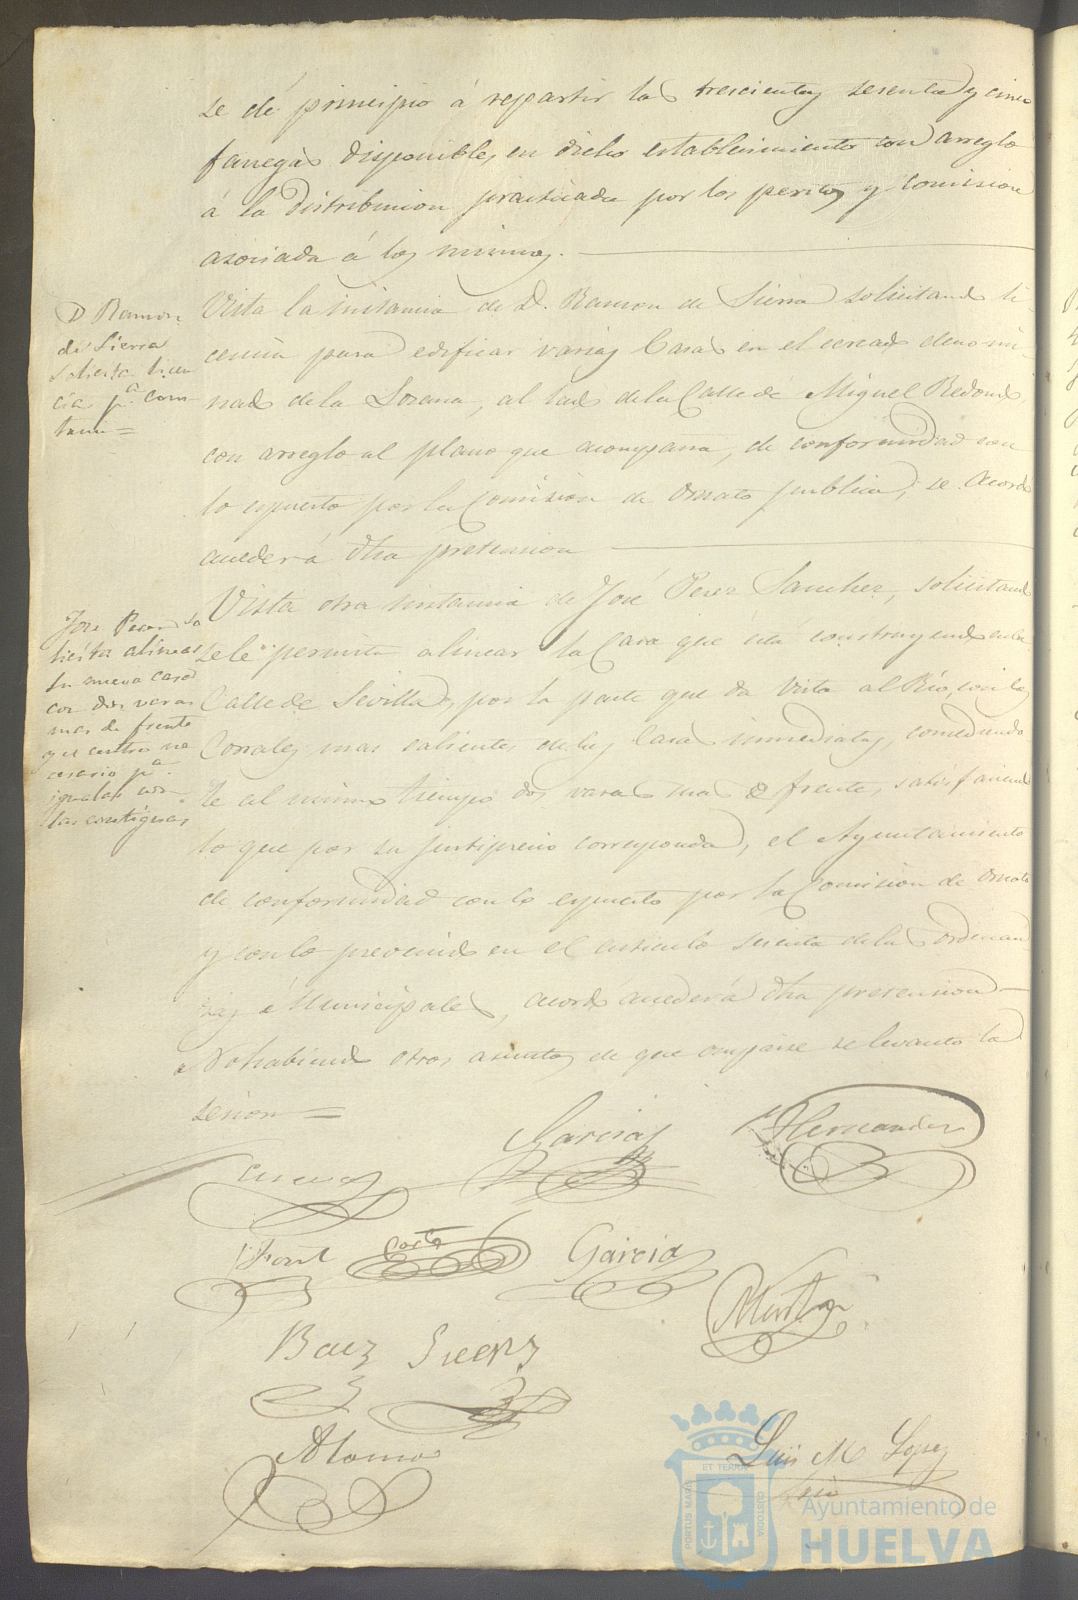 se dé principio á repartir las trescientas sesenta y cinco
fanegas disponibles en dicho establecimiento con arreglo
á la distribucion practicada por los peritos y comision
asociada á los mismos.
D Ramon
de Sierra
solicita licen
cia pª cons
truir =
Vista la instancia de D. Ramon de Sierra solicitando li
cencia para edificar varias Casas en el cercado denomi-
nado de la Lozana, al lado de la Calle de Miguel Redondo,
con arreglo al plano que acompaña, de conformidad con
lo espuesto por la Comision de Ornato publico, se acordó
acceder á dha pretension
José Perez So
licita alinear
su nueva casa
con dos varas
mas de frente
que cuatro ne
cesario pª
igualar con
las contiguas
Vista otra instancia de José Perez Sanchez, solicitando
se le permita alinear la Casa que está construyendo en la
Calle de Sevilla, por la parte que da vista al Rio, con los
Corrales mas salientes de las Casas inmediatas, concediendo
le al mismo tiempo dos varas mas de frente, satisfaciendo
lo que por su justiprecio corresponda, el Ayuntamiento
de conformidad con lo espuesto por la Comision de Ornato
y con lo prevenido en el articulo sesenta de las ordenan
zas Municipales, acordó acceder á dha pretension
No habiendo otros asuntos de que ocuparse se levantó la
sesion =
Garcia
Hernandez
Cueva
Font
Corte
Garcia
Martin
Baez
Suerz
Alonso
Luis M Lopez
Srio
PORTUS MARIS
ET TERRAE
CUSTODIA
Ayuntamiento de
HUELVA